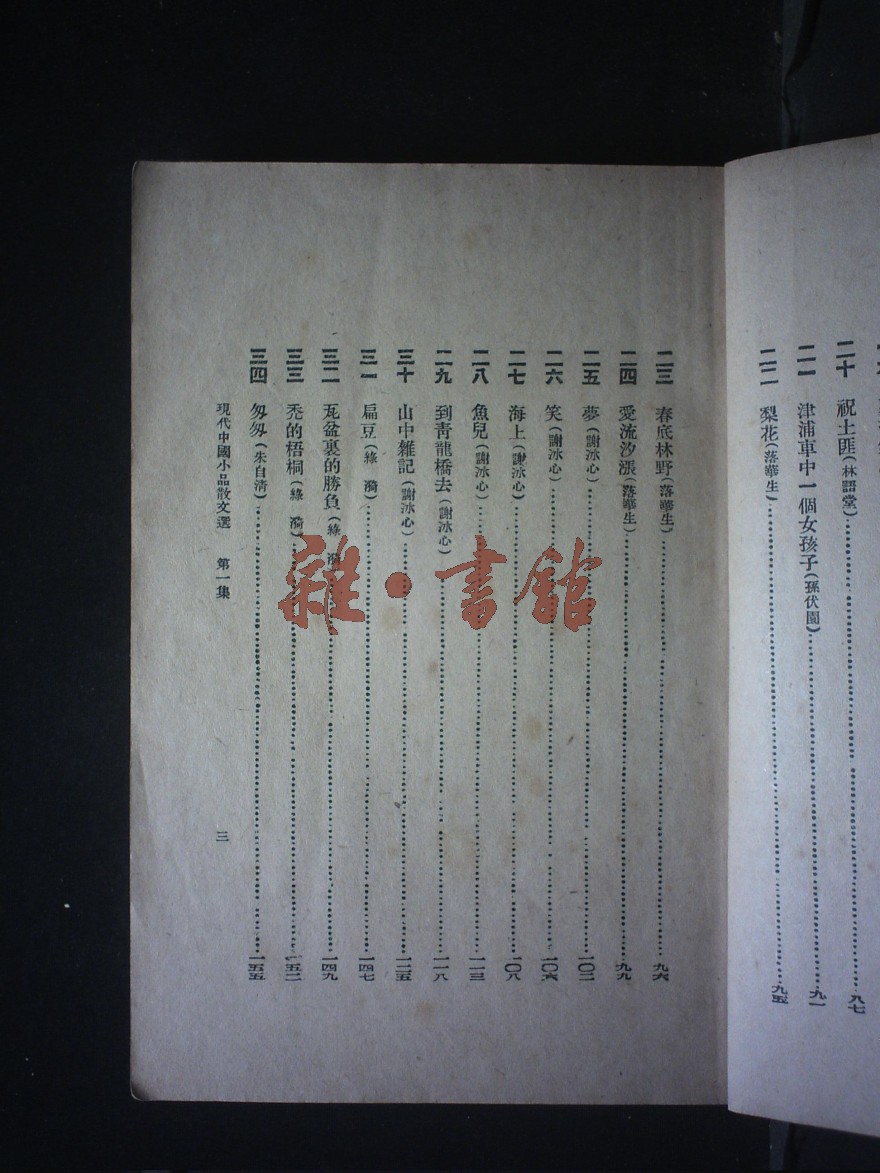 二十 祝土匪(林語堂)……八七
二一 津浦車中一個女孩子(孫伏園)……九一
二二 梨花(落華生)……九五
二三 春底林野(落華生)……九六
二四 愛流汐漲(落華生)……九九
二五 夢(謝冰心)……一〇二
二六 笑(謝冰心)……一〇六
二七 海上(謝冰心)……一〇八
二八 魚兒(謝冰心)……一一三
二九 到靑龍橋去(謝冰心)……一一八
三十 山中雜記(謝冰心)……一二五
三一 扁豆(綠漪)……一四七
三二 瓦盆裏的勝負(綠漪)……一四九
三三 禿的梧桐(綠漪)……一五二
三四 匆匆(朱自清)……一五五
現代中國小品散文選 第一集
三
雜·書館